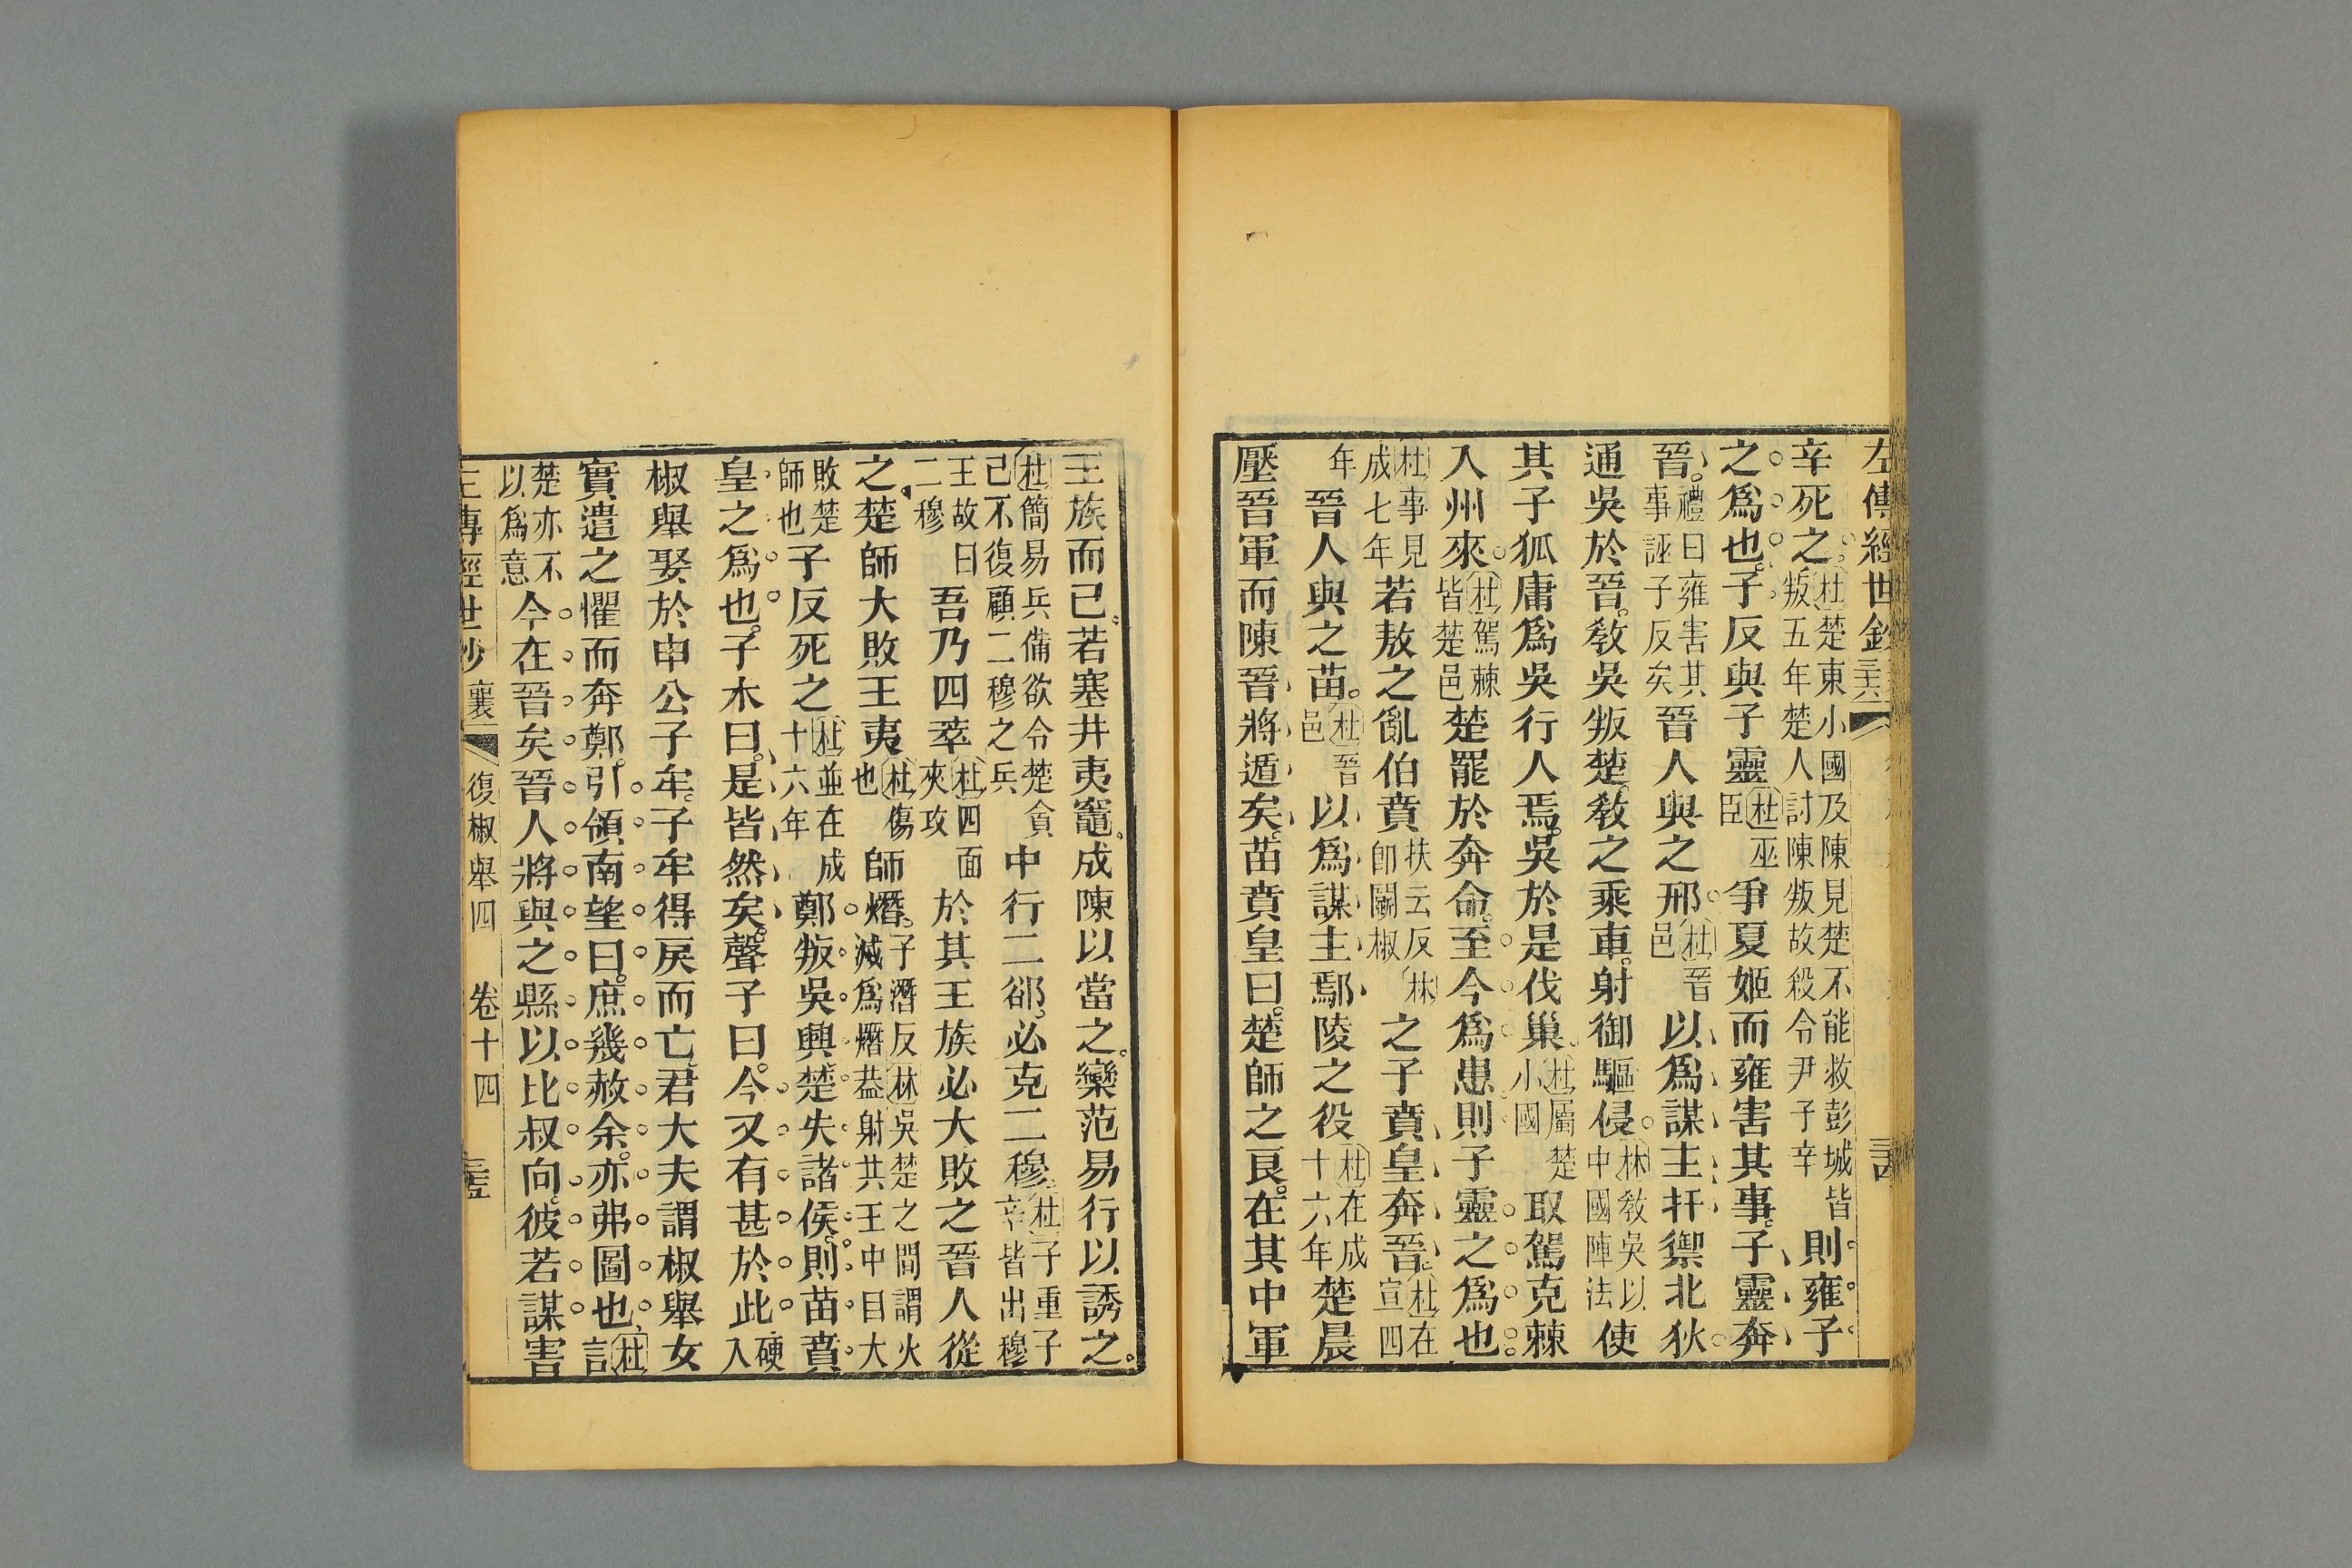 左傳經世鈔
辛死之杜楚東小國及陳見楚不能救彭城皆叛五年楚人討陳叛故殺令尹子辛則雍子
之爲也子反與子靈杜巫臣爭夏姬而雍害其事子靈奔
晉禮曰雍害其事誣子反矣晉人與之邢杜晉邑以爲謀主扞禦北狄
通吳於晉敎吳叛楚敎之乘車射御驅侵林敎吳以中國陣法使
其子狐庸爲吳行人焉吳於是伐巢杜屬楚小國取駕克棘
入州來杜駕棘皆楚邑楚罷於奔命至今爲患則子靈之爲也
杜事見成七年若敖之亂伯賁扶云反林卽鬬椒之子賁皇奔晉杜在宣四
年晉人與之苗杜晉邑以爲謀主鄢陵之役杜在成十六年楚晨
壓晉軍而陳晉將遁矣苗賁皇曰楚師之良在其中軍
王族而已若塞井夷竈成陳以當之欒范易行以誘之
杜簡易兵備欲令楚貪己不復顧二穆之兵中行二郤必克二穆杜子重子辛皆出穆
王故曰二穆吾乃四萃杜四面夾攻於其王族必大敗之晉人從
之楚師大敗王夷杜傷也師熸子潛反林吳楚之間謂火滅爲熸葢射共王中目大
敗楚師也子反死之杜並在成十六年鄭叛吳興楚失諸侯則苗賁
皇之爲也子木曰是皆然矣聲子曰今又有甚於此硬入
椒舉娶於申公子牟子牟得戾而亡君大夫謂椒舉女
實遣之懼而奔鄭引領南望曰庶幾赦余亦弗圖也杜言
楚亦不以爲意今在晉矣晉人將與之縣以比叔向彼若謀害
左傳經世鈔 襄 復椒舉四 卷十四